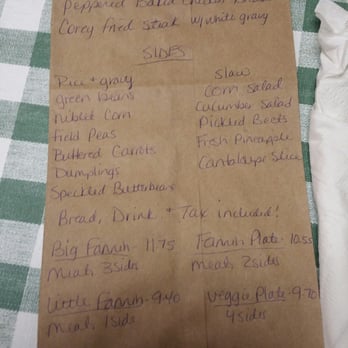 Peppered Baked Chicken
Corey Fried Steak w/white gravy
SIDES
Rice + gravy
green beans
Niblet Corn
Field Peas
Buttered Carrots
Dumplings
Speckled Butterbeans
Slaw
Corn Salad
Cucumber Salad
Pickled Beets
Fresh Pineapple
Cantaloupe Slice
Bread, Drink + Tax included!
Big Fannih 11.75
Meat, 3 sides
Fannih Plate - 10.55
Meat, 2 sides
Little Fannih - 9.40
Meat, 1 side
Veggie Plate - 9.70
4 sides